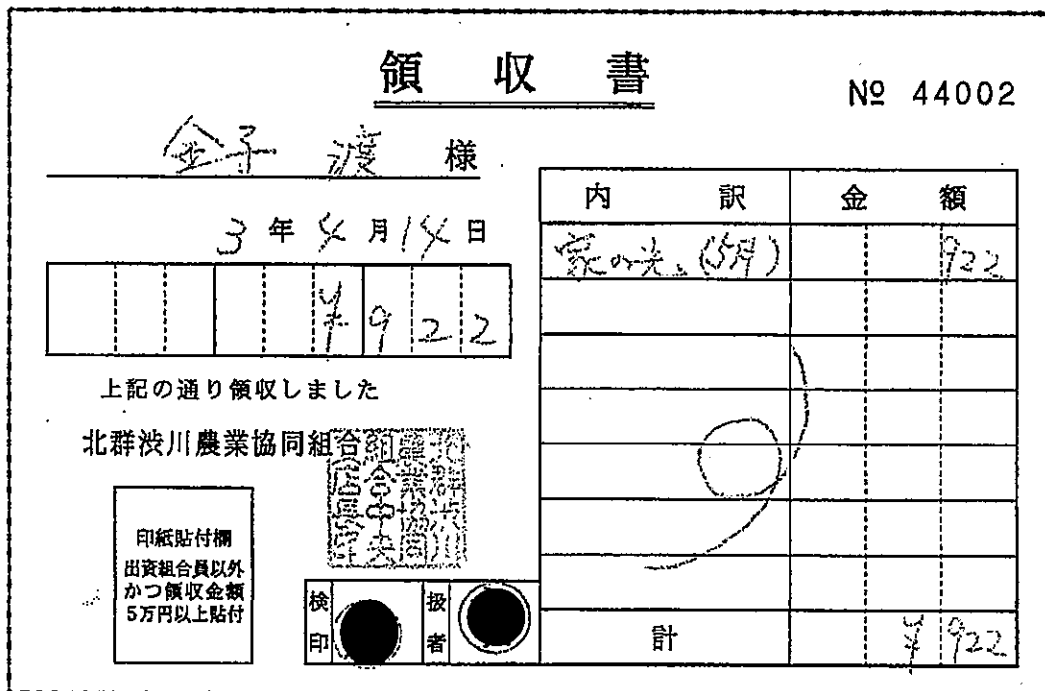 領収書
№ 44002
金子 渡 様
3年4月14日
¥922
上記の通り領収しました
北群渋川農業協同組合
印紙貼付欄
出資組合員以外
かつ領収金額
5万円以上貼付
検印
扱者
内訳 金額
家の光 (5月) 922
計 ¥922